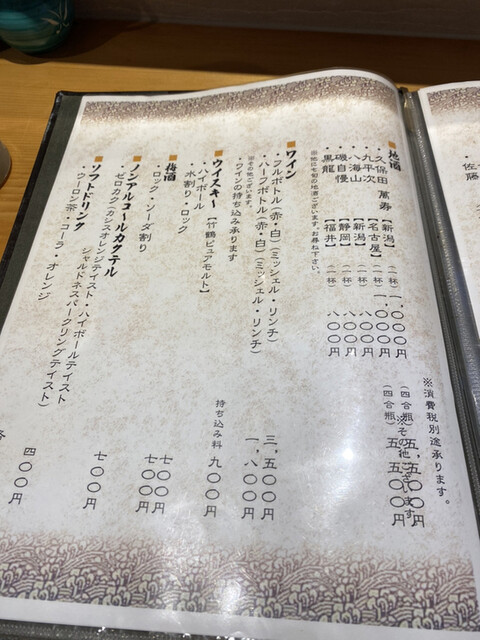 ※消費税別途承ります。
■地酒
・久保田 萬寿 【新潟】 (一杯) 一、〇〇〇円 (四合瓶) 五、五〇〇円
・九平次 【名古屋】 (一杯) 一、〇〇〇円 (四合瓶) 五、五〇〇円
・八海山 【新潟】 (一杯) 八〇〇円 ※その他ございます
・磯自慢 【静岡】 (一杯) 八〇〇円
・黒龍 【福井】 (一杯) 八〇〇円
※他に七旬の地酒ございます。お尋ね下さい。
■ワイン
・フルボトル(赤・白)(ミッシェル・リンチ) 三、五〇〇円
・ハーフボトル(赤・白)(ミッシェル・リンチ) 一、八〇〇円
※その他ございます。
・ワインの持ち込み承ります 持ち込み料
■ウイスキー
・ハイボール【竹鶴ピュアモルト】 九〇〇円
・水割り・ロック
■梅酒
・ロック・ソーダ割り 七〇〇円
■ノンアルコールカクテル
・ゼロカク(カシスオレンジテイスト・ハイボールテイスト 七〇〇円
シャルドネスパークリングテイスト)
■ソフトドリンク
・ウーロン茶・コーラ・オレンジ 各 四〇〇円
七〇〇円
・佐藤